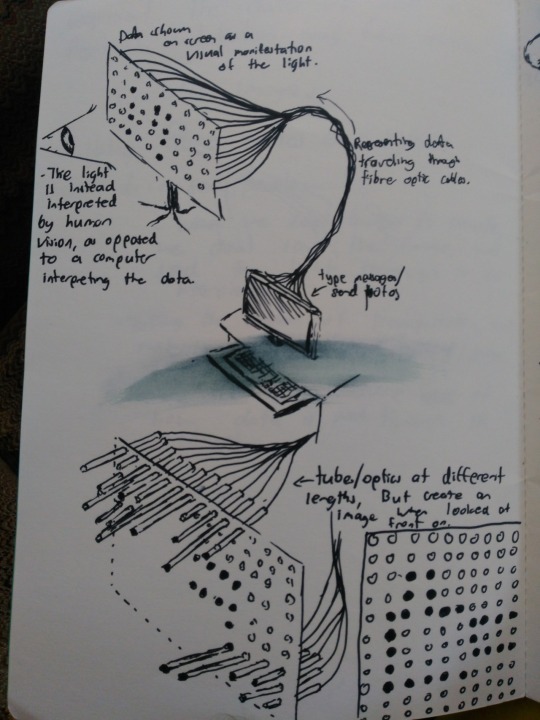 Data shown
on screen as a
visual manifestation
of the light.
Representing data
traveling through
fibre optic cables.
- The light
is instead
interpreted
by human
vision, as opposed
to a computer
interpreting the data.
type messages/
send photos
← tube/optics at different
lengths, But create an
image when looked at
front on.